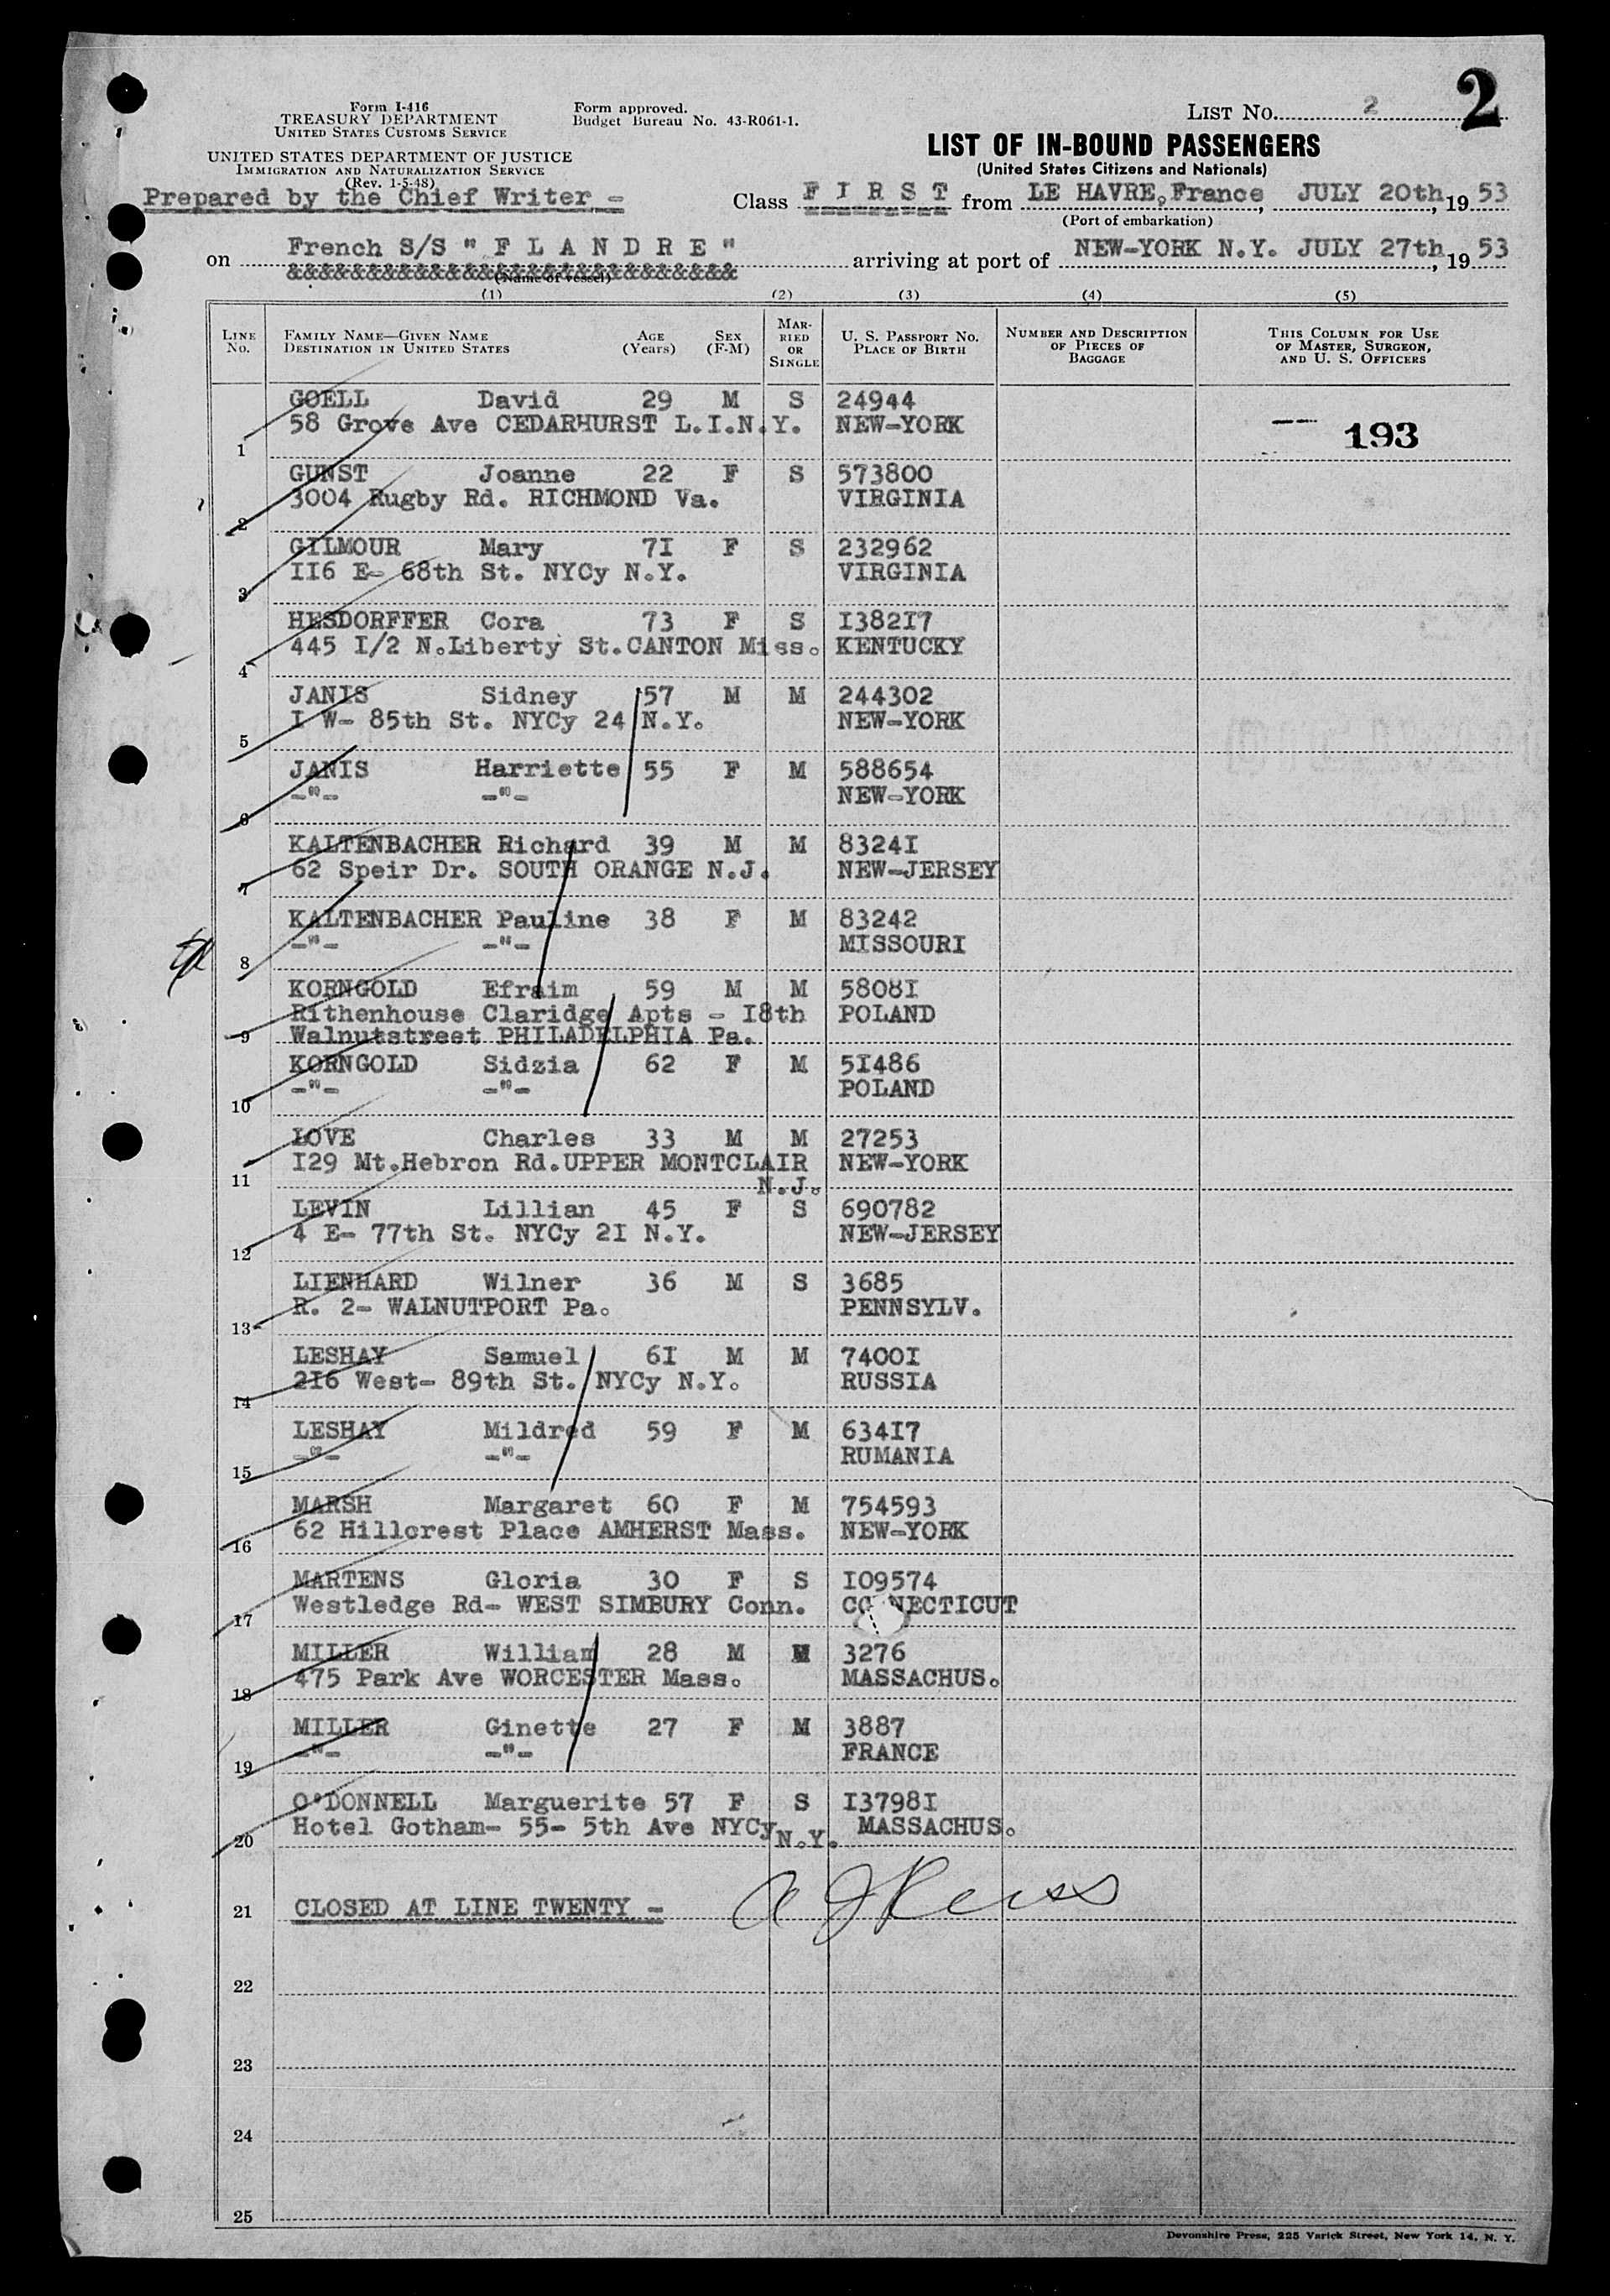 2
Form I-416
TREASURY DEPARTMENT
UNITED STATES CUSTOMS SERVICE
Form approved.
Budget Bureau No. 43-R061-1.
LIST NO. 2
LIST OF IN-BOUND PASSENGERS
(United States Citizens and Nationals)
UNITED STATES DEPARTMENT OF JUSTICE
IMMIGRATION AND NATURALIZATION SERVICE
(Rev. 1-5-48)
Prepared by the Chief Writer -
Class F I R S T from LE HAVRE, France, JULY 20th, 19 53
(Port of embarkation)
on French S/S " F L A N D R E " arriving at port of NEW-YORK N.Y. JULY 27th, 19 53
&&&&&&&&&&&&&&&&&&&&&&&&&&&&
(Name of vessel)
(1) (2) (3) (4) (5)
LINE No. FAMILY NAME—GIVEN NAME DESTINATION IN UNITED STATES AGE (Years) SEX (F-M) MARRIED OR SINGLE U. S. PASSPORT NO. PLACE OF BIRTH NUMBER AND DESCRIPTION OF PIECES OF BAGGAGE THIS COLUMN FOR USE OF MASTER, SURGEON, AND U. S. OFFICERS
GOELL David 29 M S 24944
1 58 Grove Ave CEDARHURST L.I.N.Y. NEW-YORK
193
GUNST Joanne 22 F S 573800
2 3004 Rugby Rd. RICHMOND Va. VIRGINIA
GILMOUR Mary 7I F S 232962
3 II6 E- 68th St. NYCy N.Y. VIRGINIA
HESDORFFER Cora 73 F S I382I7
4 445 I/2 N.Liberty St.CANTON Miss. KENTUCKY
JANIS Sidney 57 M M 244302
5 I W- 85th St. NYCy 24 N.Y. NEW-YORK
JANIS Harriette 55 F M 588654
6 -"- -"- NEW-YORK
KALTENBACHER Richard 39 M M 8324I
7 62 Speir Dr. SOUTH ORANGE N.J. NEW-JERSEY
KALTENBACHER Pauline 38 F M 83242
8 -"- -"- MISSOURI
KORNGOLD Efraim 59 M M 5808I
Rithenhouse Claridge Apts - I8th POLAND
9 Walnutstreet PHILADELPHIA Pa.
KORNGOLD Sidzia 62 F M 5I486
10 -"- -"- POLAND
LOVE Charles 33 M M 27253
11 I29 Mt.Hebron Rd.UPPER MONTCLAIR NEW-YORK
N.J.
LEVIN Lillian 45 F S 690782
12 4 E- 77th St. NYCy 2I N.Y. NEW-JERSEY
LIENHARD Wilner 36 M S 3685
13 R. 2- WALNUTPORT Pa. PENNSYLV.
LESHAY Samuel 6I M M 7400I
14 2I6 West- 89th St. NYCy N.Y. RUSSIA
LESHAY Mildred 59 F M 634I7
15 -"- -"- RUMANIA
MARSH Margaret 60 F M 754593
16 62 Hillcrest Place AMHERST Mass. NEW-YORK
MARTENS Gloria 30 F S I09574
17 Westledge Rd- WEST SIMBURY Conn. CONNECTICUT
MILLER William 28 M M 3276
18 475 Park Ave WORCESTER Mass. MASSACHUS.
MILLER Ginette 27 F M 3887
19 -"- -"- FRANCE
O'DONNELL Marguerite 57 F S I3798I
20 Hotel Gotham- 55- 5th Ave NYCy N.Y. MASSACHUS.
21 CLOSED AT LINE TWENTY -
22
23
24
25
Devonshire Press, 225 Varick Street, New York 14, N. Y.